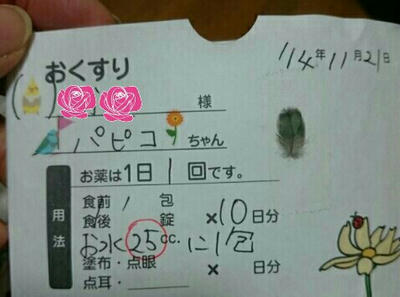 '14年11月21日
おくすり
様
パピコちゃん
お薬は1日1回です。
用法
食前 1 包
食後 錠 ×10日分
お水25cc.に1包
塗布・点眼
× 日分
点耳・